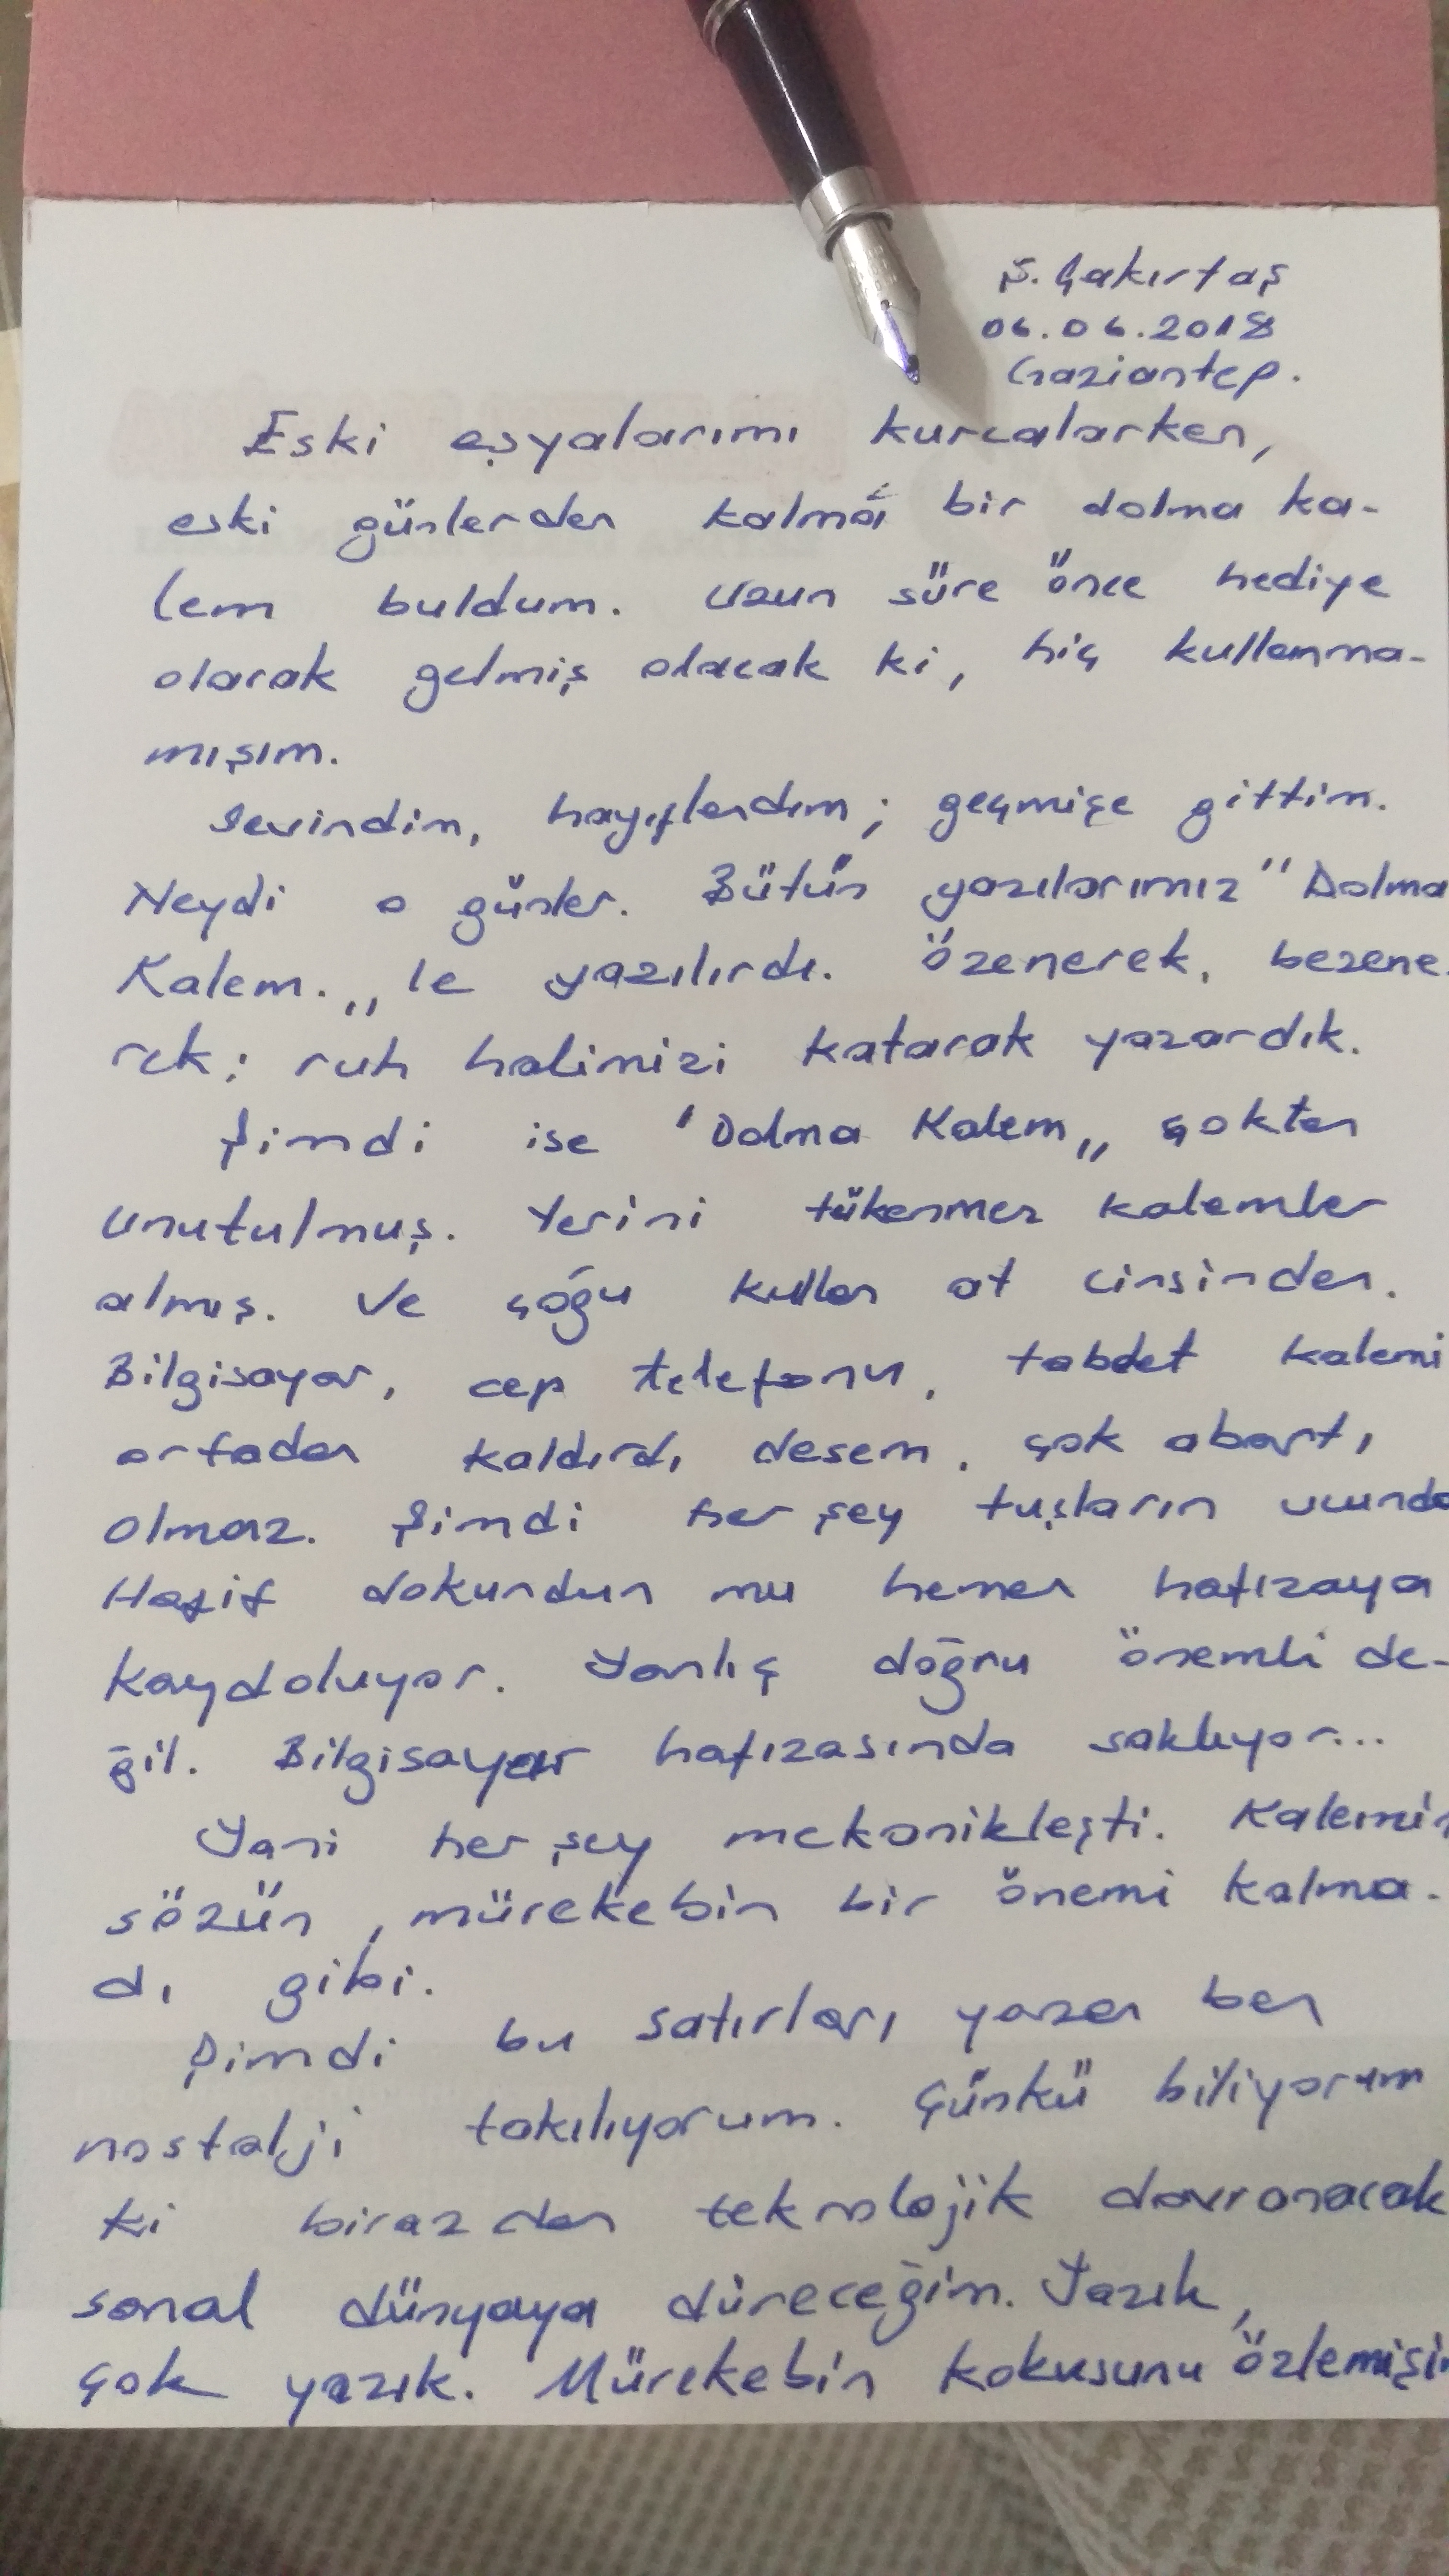 Ş. Çakırtaş
06.06.2018
Gaziantep.
Eski eşyalarımı kurcalarken,
eski günlerden kalma bir dolma ka-
lem buldum. Uzun süre önce hediye
olarak gelmiş olacak ki, hiç kullanma-
mışım.
Sevindim, hayıflandım; geçmişe gittim.
Neydi o günler. Bütün yazılarımız "Dolma
Kalem.,, le yazılırdı. Özenerek, bezene-
rek; ruh halimizi katarak yazardık.
Şimdi ise "Dolma Kalem,, çoktan
unutulmuş. Yerini tükenmez kalemler
almış. Ve çoğu kullan at cinsinden.
Bilgisayar, cep telefonu, tabdet kalemi
ortadan kaldırdı desem, çok abartı
olmaz. Şimdi her şey tuşların ucunda
Hafif dokundun mu hemen hafızaya
kaydoluyor. Yanlış doğru önemli de-
ğil. Bilgisayar hafızasında saklıyor...
Yani her şey mekanikleşti. Kalemin
sözün, mürekebin bir önemi kalma-
dı gibi.
Şimdi bu satırları yazan ben
nostalji takılıyorum. Çünkü biliyorum
ki birazdan teknolojik davranacak
sanal dünyaya düreceğim. Yazık,
çok yazık. Mürekebin kokusunu özlemişim